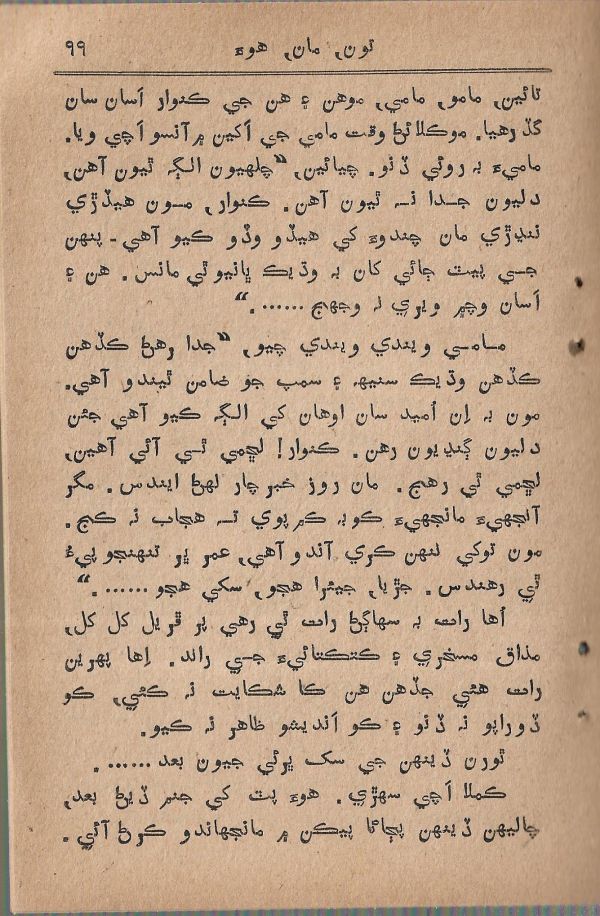 تون، مان، هوءَ
۹۹
تائين، مامو، مامي، موهن ۽ هن جي ڪنوار اَسان سان
گڏ رهيا. موڪلائڻ وقت مامي جي اَکين ۾ آنسو اَچي ويا.
ماميءَ بہ روئي ڏنو. چيائين، ”چلهيون الڳہ ٿيون آهن،
دليون جدا نہ ٿيون آهن. ڪنوار، مون هيڏڙي
ننڍڙي مان چندوءَ کي هيڏو وڏو ڪيو آهي - پنهن
جي پيٽ ڄائي کان بہ وڌيڪ ڀانيو ٿي مانس. هن ۽
اَسان وچ ۾ ويري نہ وجهج ...... .“
مامي ويندي ويندي چيو، ”جدا رهڻ ڪڏهن
ڪڏهن وڌيڪ سنيهہ ۽ سمپ جو ضامن ٿيندو آهي.
مون بہ اِن اُميد سان اوهان کي الڳہ ڪيو آهي جئن
دليون ڳنڍيون رهن. ڪنوار! لڇمي ٿي آئي آهين،
لڇمي ٿي رهج. مان روز خبر چار لهڻ ايندس. مگر
آنجهيءَ مانجهيءَ ڪوبہ ڪم پوي تہ هجاب نہ ڪج.
مون توکي ننهن ڪري آندو آهي، عمر ڀر تنهنجو پيءُ
ٿي رهندس. جڙيا، جيئرا هجو، سکي هجو...... .“
اُها رات بہ سهاڳڻ رات ٿي رهي پر ڦريل کل کل،
مذاق مسخري ۽ ڪتڪتائيءَ جي راند. اِها پهرين
رات هئي جڏهن هن ڪا شڪايت نہ ڪئي، ڪو
ڏوراپو نہ ڏنو ۽ ڪو اَنديشو ظاهر نہ ڪيو.
ٿورن ڏينهن جي سک ڀرئي جيون بعد...... .
ڪملا اَچي سهڙي. هوءَ پٽ کي جنم ڏيڻ بعد،
چاليهن ڏينهن پڄاڻا پيڪن ۾ مانجهاندو ڪرڻ آئي.